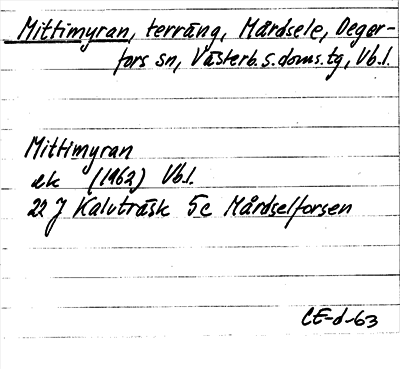 Mittimyran, terräng, Mårdsele, Deger-
fors sn, Västerb. s. doms. tg, Vb. l.
Mittimyran
ek (1962) Vb. l.
22 J Kalvträsk 5c Mårdselforsen
CE-d-63